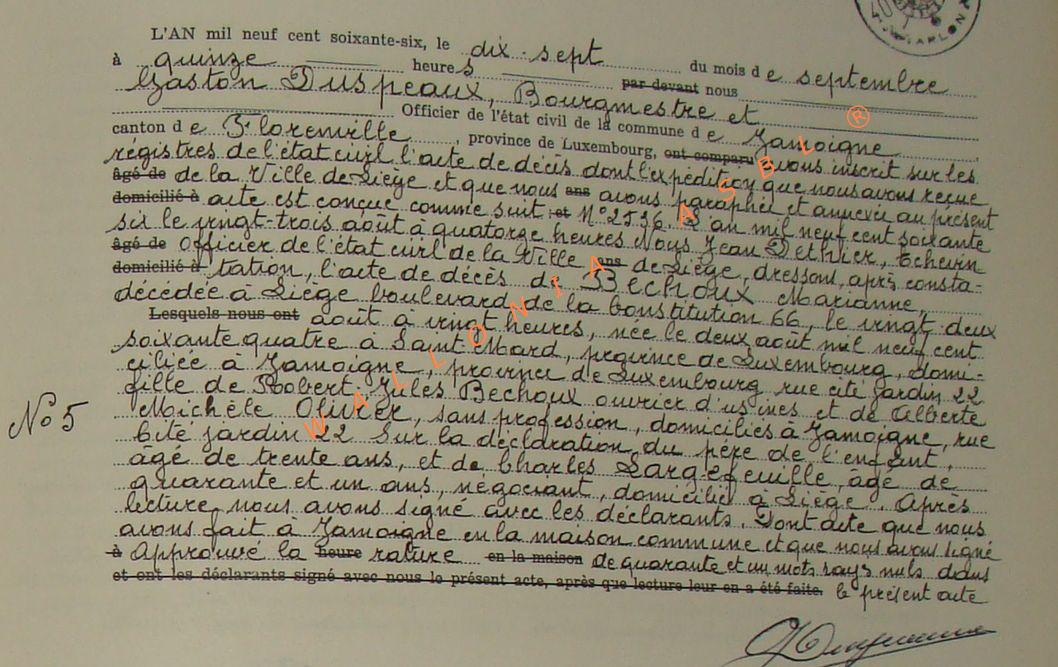 L'AN mil neuf cent soixante-six, le dix-sept du mois de septembre
à quinze heures par devant nous
Gaston Duspeaux, Bourgmestre et
Officier de l'état civil de la commune de Jamoigne
canton de Florenville province de Luxembourg, ont comparu avons inscrit sur les
régistres de l'état civil l'acte de décès dont l'expédition que nous avons reçue
âgé de de la Ville de Liège et que nous ans avons paraphée et annexée au présent
domicilié à acte est conçue comme suit : et N° 2536. L'an mil neuf cent soixante
six le vingt-trois août à quatorze heures Nous Jean Dethier, Echevin
âgé de Officier de l'état civil de la Ville ans de Liège, dressons, après consta-
domicilié à tation, l'acte de décès de Bechoux Marianne,
décédée à Liège boulevard de la Constitution 66, le vingt deux
Lesquels nous ont août à vingt heures, née le deux août mil neuf cent
soixante quatre à Saint Mard, province de Luxembourg, domi-
ciliée à Jamoigne, province de Luxembourg, rue cité jardin 22
fille de Robert Jules Bechoux ouvrier d'usines et de Alberte
Michèle Olivier, sans profession, domiciliés à Jamoigne, rue
N° 5
Cité jardin 22 Sur la déclaration du père de l'enfant,
âgé de trente ans, et de Charles Largefeuille, âgé de
quarante et un ans, négociant, domicilié à Liège. Après
lecture, nous avons signé avec les déclarants. Dont acte que nous
avons fait à Jamoigne en la maison commune et que nous avons signé
à Approuvé la heure rature en la maison de quarante et un mots rayés nuls dans
et ont les déclarants signé avec nous le présent acte, après que lecture leur en a été faite. le présent acte
WALLONIA ASBL ®
ARLON